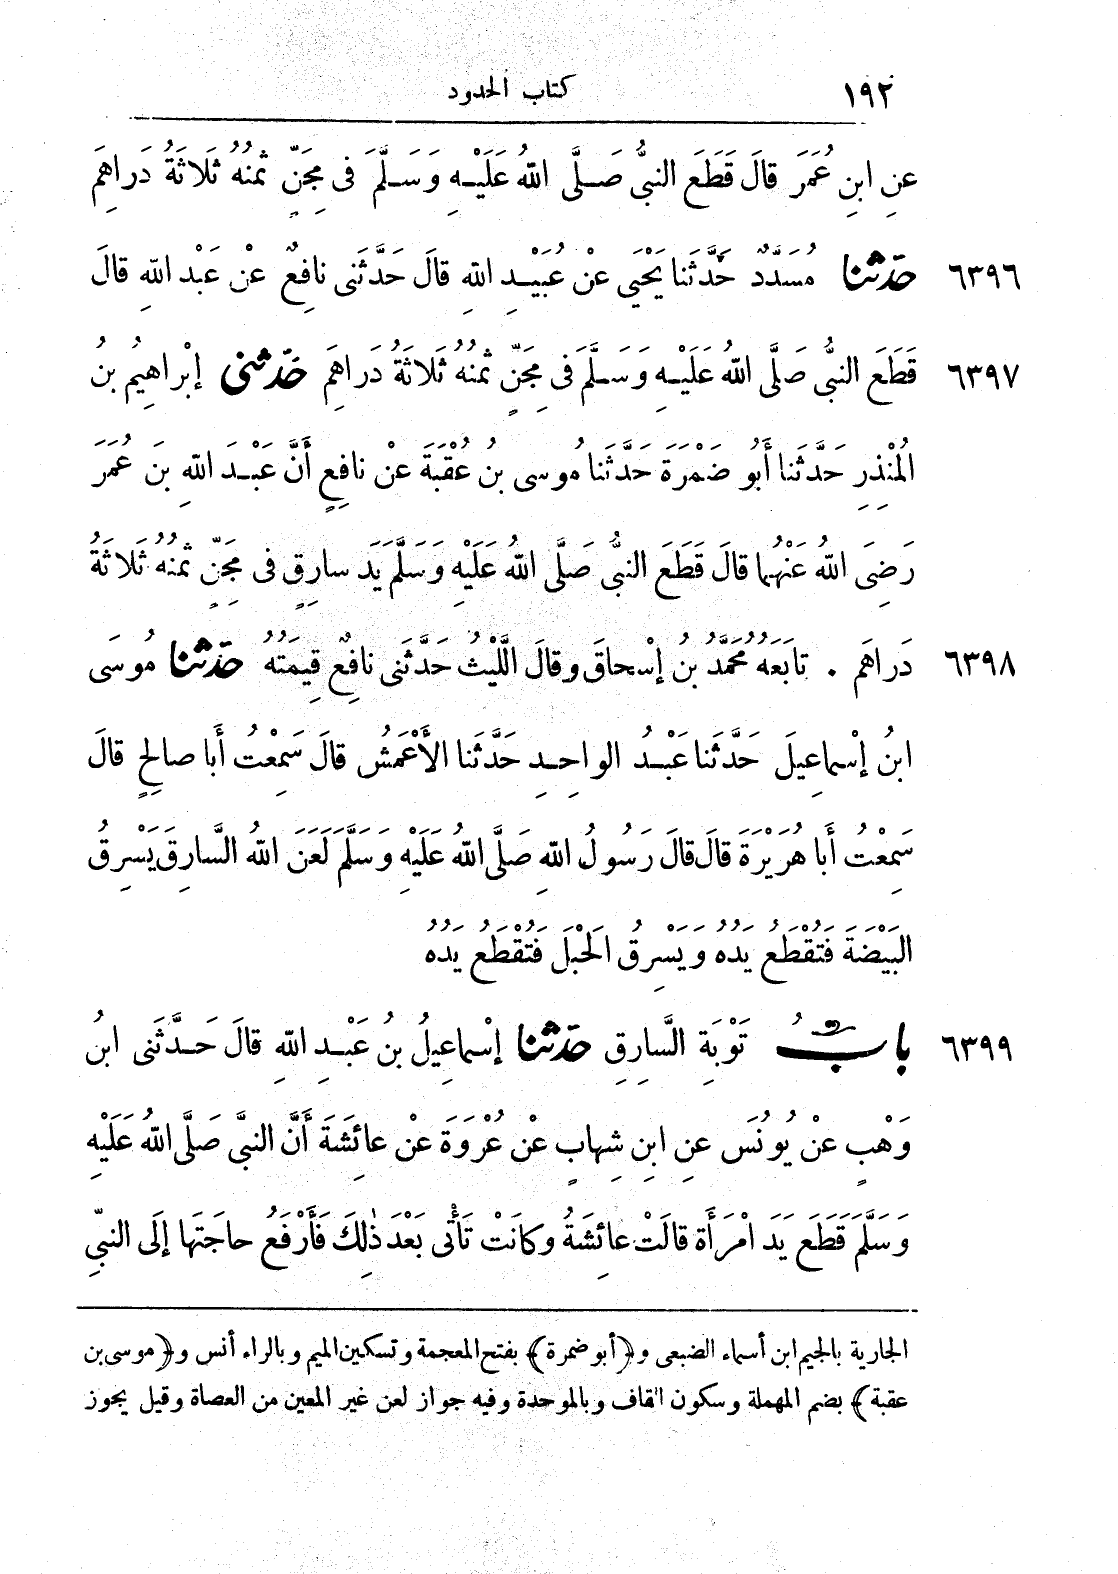 ١٩٢ كتاب الحدود
عنِ ابنِ عُمَرَ قالَ قَطَعَ النبىُّ صَلَّى اللهُ عَلَيْهِ وَسَلَّمَ فى مِجَنٍّ ثَمَنُهُ ثَلاثَةُ دَراهِمَ
٦٣٩٦ حدّثنا مُسَدَّدٌ حَدَّثَنا يَحْيَى عنْ عُبَيْدِ اللهِ قالَ حَدَّثَنى نافِعٌ عنْ عَبْدِ اللهِ قالَ
٦٣٩٧ قَطَعَ النبىُّ صَلَّى اللهُ عَلَيْهِ وَسَلَّمَ فى مِجَنٍّ ثَمَنُهُ ثَلاثَةُ دَراهِمَ حدّثنى إبْراهِيمُ بنُ
المُنْذِرِ حَدَّثَنا أَبُو ضَمْرَةَ حَدَّثَنا مُوسى بنُ عُقْبَةَ عنْ نافِعٍ أَنَّ عَبْدَ اللهِ بنَ عُمَرَ
رَضِىَ اللهُ عَنْهُما قالَ قَطَعَ النبىُّ صَلَّى اللهُ عَلَيْهِ وَسَلَّمَ يَدَ سارِقٍ فى مِجَنٍّ ثَمَنُهُ ثَلاثَةُ
٦٣٩٨ دَراهِمَ . تابَعَهُ مُحَمَّدُ بنُ إسْحاقَ وقالَ اللَّيْثُ حَدَّثَنى نافِعٌ قِيمَتُهُ حدّثنا مُوسَى
ابنُ إسْماعِيلَ حَدَّثَنا عَبْدُ الواحِدِ حَدَّثَنا الأَعْمَشُ قالَ سَمِعْتُ أَبا صالِحٍ قالَ
سَمِعْتُ أَبا هُرَيْرَةَ قالَ قالَ رَسُولُ اللهِ صَلَّى اللهُ عَلَيْهِ وَسَلَّمَ لَعَنَ اللهُ السَّارِقَ يَسْرِقُ
البَيْضَةَ فَتُقْطَعُ يَدُهُ وَيَسْرِقُ الحَبْلَ فَتُقْطَعُ يَدُهُ
٦٣٩٩ بابُ تَوْبَةِ السَّارِقِ حدّثنا إسْماعِيلُ بنُ عَبْدِ اللهِ قالَ حَدَّثَنى ابنُ
وَهْبٍ عنْ يُونُسَ عنِ ابنِ شِهابٍ عنْ عُرْوَةَ عنْ عائِشَةَ أَنَّ النبىَّ صَلَّى اللهُ عَلَيْهِ
وَسَلَّمَ قَطَعَ يَدَ امْرَأَةٍ قالَتْ عائِشَةُ وكانَتْ تَأْتى بَعْدَ ذٰلِكَ فَأَرْفَعُ حاجَتَها إلَى النبىِّ
الجارية بالجيم ابن أسماء الضبعى و﴿أبو ضمرة﴾ بفتح المعجمة وتسكين الميم وبالراء أنس و﴿موسى بن
عقبة﴾ بضم المهملة وسكون القاف وبالموحدة وفيه جواز لعن غير المعين من العصاة وقيل يجوز